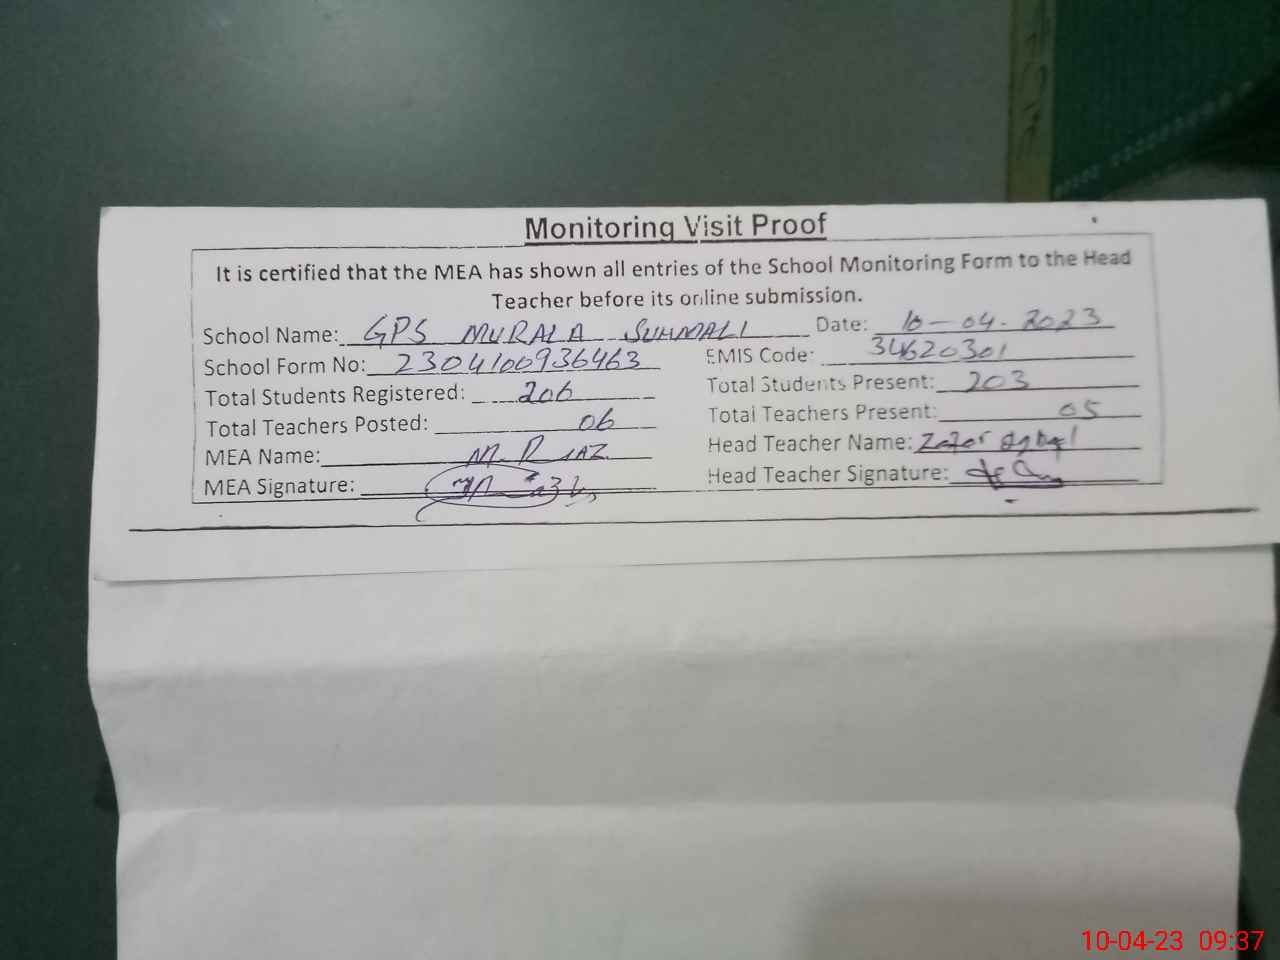 Monitoring Visit Proof
It is certified that the MEA has shown all entries of the School Monitoring Form to the Head
Teacher before its online submission.
School Name: GPS MURALA SUHMALI Date: 10-04-2023
School Form No: 2304100936463 EMIS Code: 34620301
Total Students Registered: 206 Total Students Present: 203
Total Teachers Posted: 06 Total Teachers Present: 05
MEA Name: M. RIAZ Head Teacher Name: Zafar Iqbal
MEA Signature: Head Teacher Signature:
10-04-23 09:37